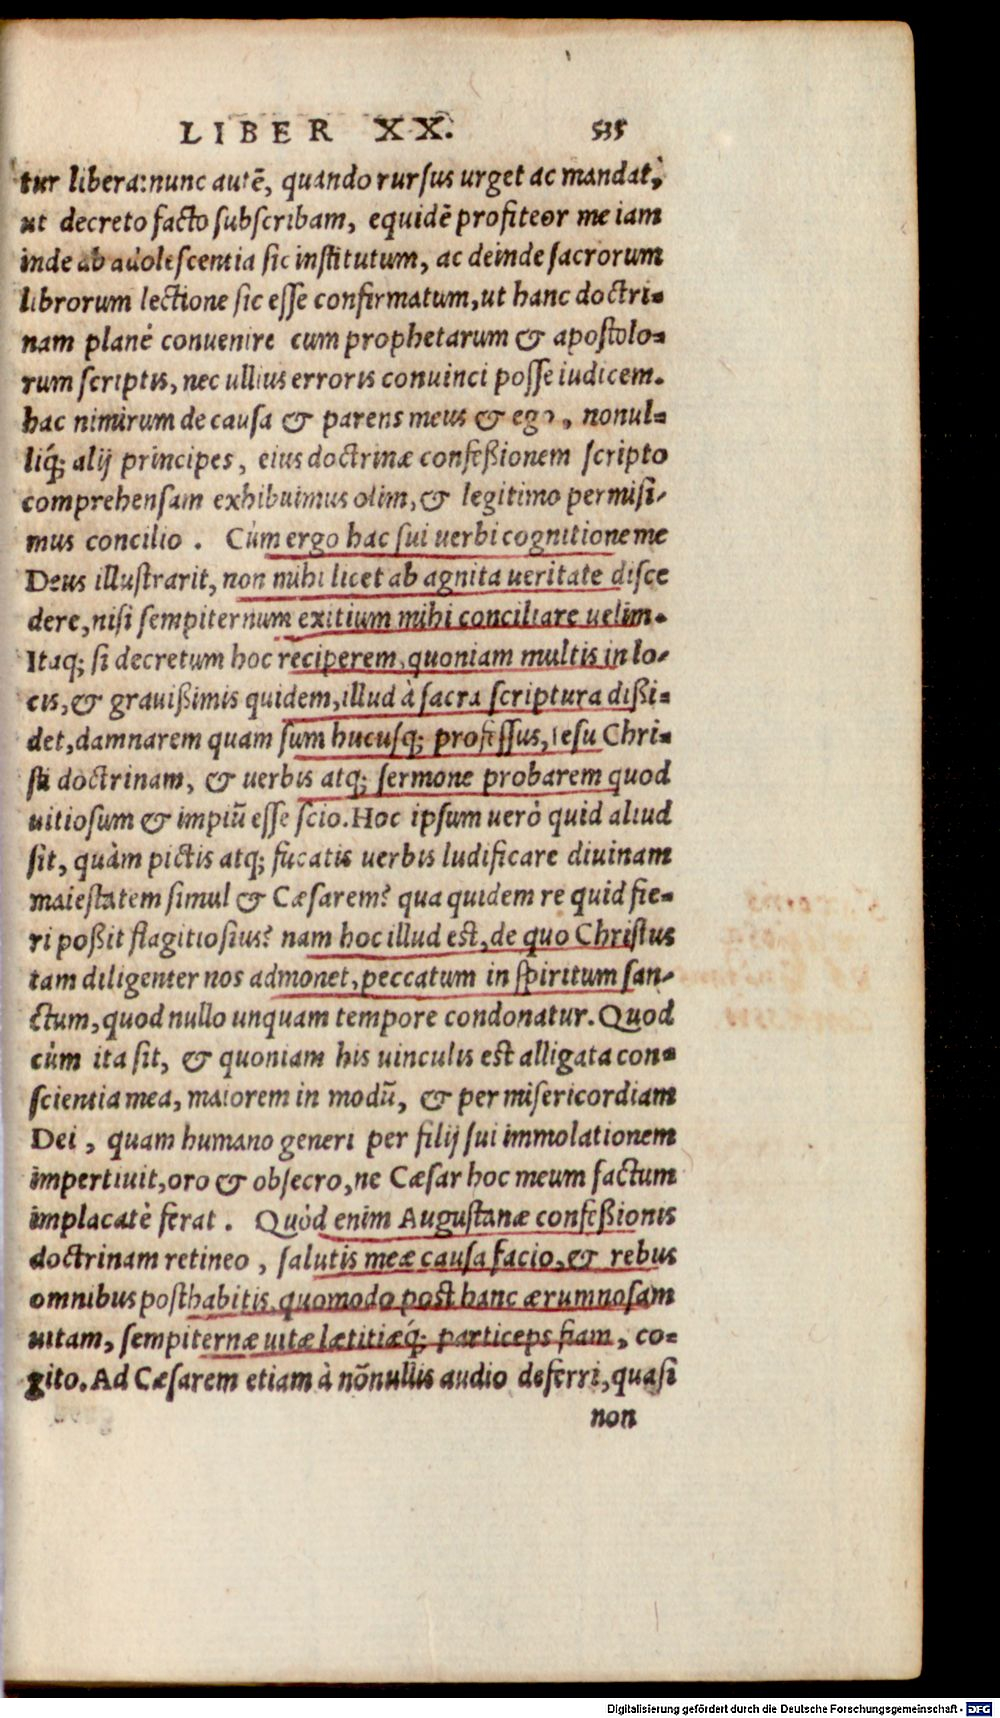 LIBER XX. 535
tur libera: nunc autē, quando rursus urget ac mandat,
ut decreto facto subscribam, equidē profiteor me iam
inde ab adolescentia sic institutum, ac deinde sacrorum
librorum lectione sic esse confirmatum, ut hanc doctri-
nam planè conuenire cum prophetarum & apostolo-
rum scriptis, nec ullius erroris conuinci posse iudicem.
hac nimirum de causa & parens meus & ego, nonul-
liq́; alij principes, eius doctrinæ confeßionem scripto
comprehensam exhibuimus olim, & legitimo permisi-
mus concilio. Cùm ergo hac sui uerbi cognitione me
Deus illustrarit, non mihi licet ab agnita ueritate disce
dere, nisi sempiternum exitium mihi conciliare uelim.
Itaq; si decretum hoc reciperem, quoniam multis in lo-
cis, & grauißimis quidem, illud à sacra scriptura dißi-
det, damnarem quam sum hucusq; professus, Iesu Chri-
sti doctrinam, & uerbis atq; sermone probarem quod
uitiosum & impiū esse scio. Hoc ipsum uerò quid aliud
sit, quàm pictis atq; fucatis uerbis ludificare diuinam
maiestatem simul & Cæsarem? qua quidem re quid fie-
ri poßit flagitiosius? nam hoc illud est, de quo Christus
tam diligenter nos admonet, peccatum in spiritum san-
ctum, quod nullo unquam tempore condonatur. Quod
cùm ita sit, & quoniam his uinculis est alligata con-
scientia mea, maiorem in modū, & per misericordiam
Dei, quam humano generi per filij sui immolationem
impertiuit, oro & obsecro, ne Cæsar hoc meum factum
implacatè ferat. Quòd enim Augustanæ confeßionis
doctrinam retineo, salutis meæ causa facio, & rebus
omnibus posthabitis, quomodo post hanc ærumnosam
uitam, sempiternæ uitæ lætitiæq́; particeps fiam, co-
gito. Ad Cæsarem etiam à nōnullis audio deferri, quasi
non
Digitalisierung gefördert durch die Deutsche Forschungsgemeinschaft - DFG